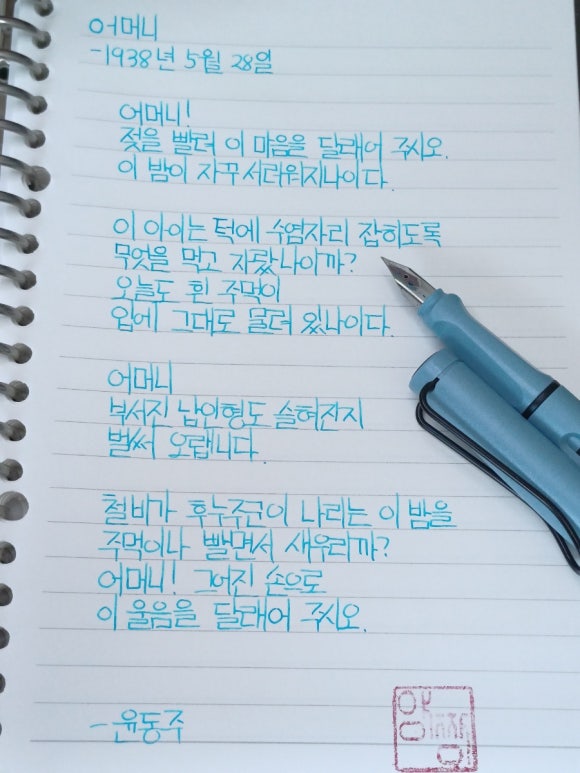 어머니
-1938년 5월 28일
어머니!
젖을 빨려 이 마음을 달래어 주시오.
이 밤이 자꾸 서러워지나이다.
이 아이는 턱에 수염자리 잡히도록
무엇을 먹고 자랐나이까?
오늘도 흰 주먹이
입에 그대로 물려 있나이다.
어머니
부서진 납인형도 슬혀진지
벌써 오랩니다.
철비가 후누주군이 나리는 이 밤을
주먹이나 빨면서 새우리까?
어머니! 그어진 손으로
이 울음을 달래어 주시오.
-윤동주